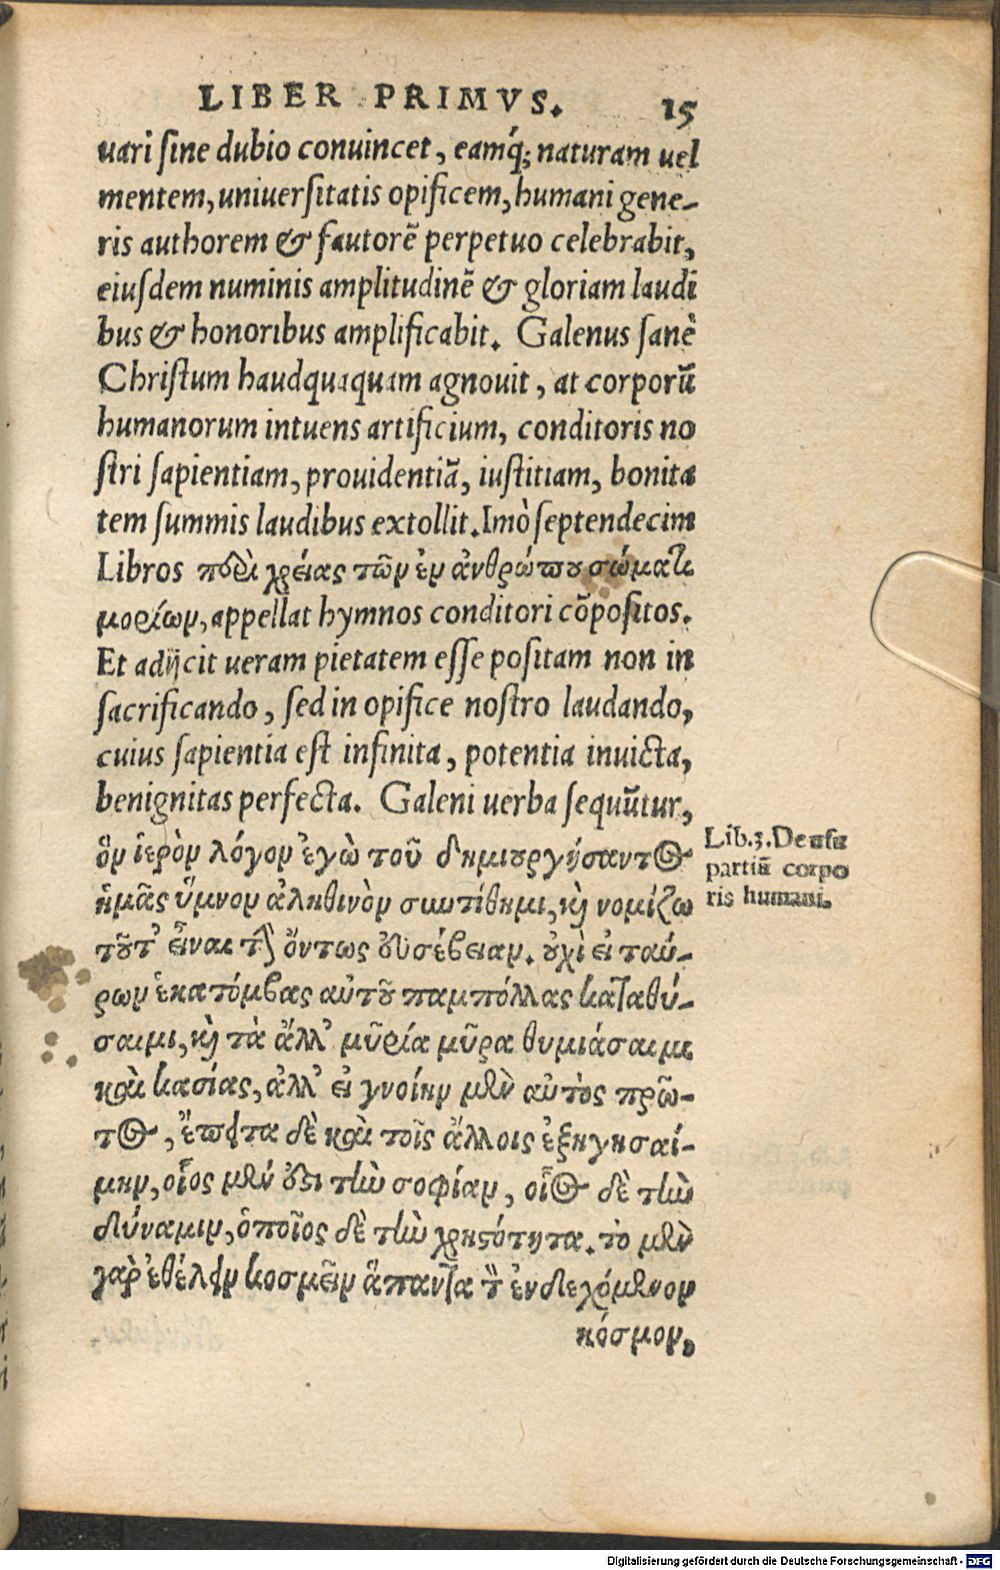 LIBER PRIMVS. 15
uari sine dubio conuincet, eamq́; naturam uel
mentem, uniuersitatis opificem, humani gene-
ris authorem & fautorē perpetuo celebrabit,
eiusdem numinis amplitudinē & gloriam laudi
bus & honoribus amplificabit. Galenus sanè
Christum haudquaquam agnouit, at corporū
humanorum intuens artificium, conditoris no
stri sapientiam, prouidentiā, iustitiam, bonita
tem summis laudibus extollit. Imò septendecim
Libros πϵρὶ χρείας τῶν ἐν ἀνθρώπου σώματι
μορίων, appellat hymnos conditori cōpositos.
Et adijcit ueram pietatem esse positam non in
sacrificando, sed in opifice nostro laudando,
cuius sapientia est infinita, potentia inuicta,
benignitas perfecta. Galeni uerba sequūtur,
ὃν ἱερὸν λόγον ἐγὼ τοῦ δημιουργήσαντος
ἡμᾶς ὕμνον ἀληθινὸν συντίθημι, κὶ νομίζω
τοῦτ' εἶναι τὴν ὄντως εὐσέβειαν. οὐχὶ εἰ ταύ-
ρων ἑκατόμβας αὐτοῦ παμπόλλας καταθύ-
σαιμι, κὶ τὰ ἄλλ' μυρία μύρα θυμιάσαιμι
καὶ κασίας, ἀλλ' εἰ γνοίην μὲν αὐτὸς πρῶ-
τος, ἔπειτα δὲ καὶ τοῖς ἄλλοις ἐξηγησαί-
μην, οἷος μέν ἐστι τὴν σοφίαν, οἷος δὲ τὴν
δύναμιν, ὁποῖος δὲ τὴν χρηστότητα. τὸ μὲν
γὰρ ἐθέλειν κοσμεῖν ἅπαντα τὸν ἐνδεχόμενον
κόσμον,
Lib. 3. De usu
partiū corpo
ris humani.
Digitalisierung gefördert durch die Deutsche Forschungsgemeinschaft - DFG